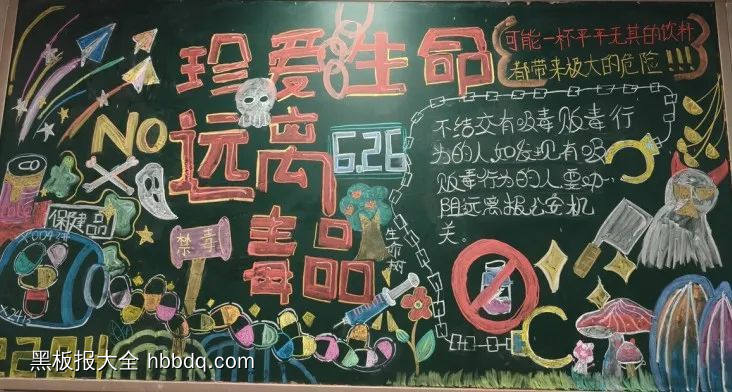 珍爱生命
可能一杯平平无其的饮料
都带来极大的危险!!!
NO
远离
6.26
毒品
不结交有吸毒贩毒行
为的人,如发现有吸
贩毒行为的人要劝
阻远离报公安机
关。
保健品
禁毒
生命树
黑板报大全 hbbdq.com